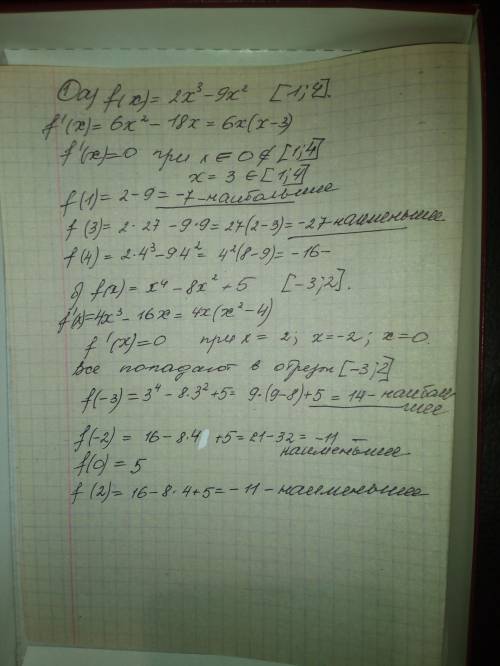 ① a) f(x) = 2x³ - 9x² [1;4].
f'(x) = 6x² - 18x = 6x(x-3)
f'(x) = 0 при x ∈ 0 ∉ [1;4]
x = 3 ∈ [1;4]
f(1) = 2 - 9 = -7 - наибольшее
f(3) = 2·27 - 9·9 = 27(2-3) = -27 - наименьшее
f(4) = 2·4³ - 9·4² = 4²(8-9) = -16 -
б) f(x) = x⁴ - 8x² + 5 [-3;2].
f'(x) = 4x³ - 16x = 4x(x²-4)
f'(x) = 0 при x = 2; x = -2; x = 0.
Все попадают в отрезок [-3;2]
f(-3) = 3⁴ - 8·3² + 5 = 9·(9-8) + 5 = 14 - наиболь-
шее
f(-2) = 16 - 8·4 + 5 = 21 - 32 = -11 -
наименьшее
f(0) = 5
f(2) = 16 - 8·4 + 5 = -11 - наименьшее